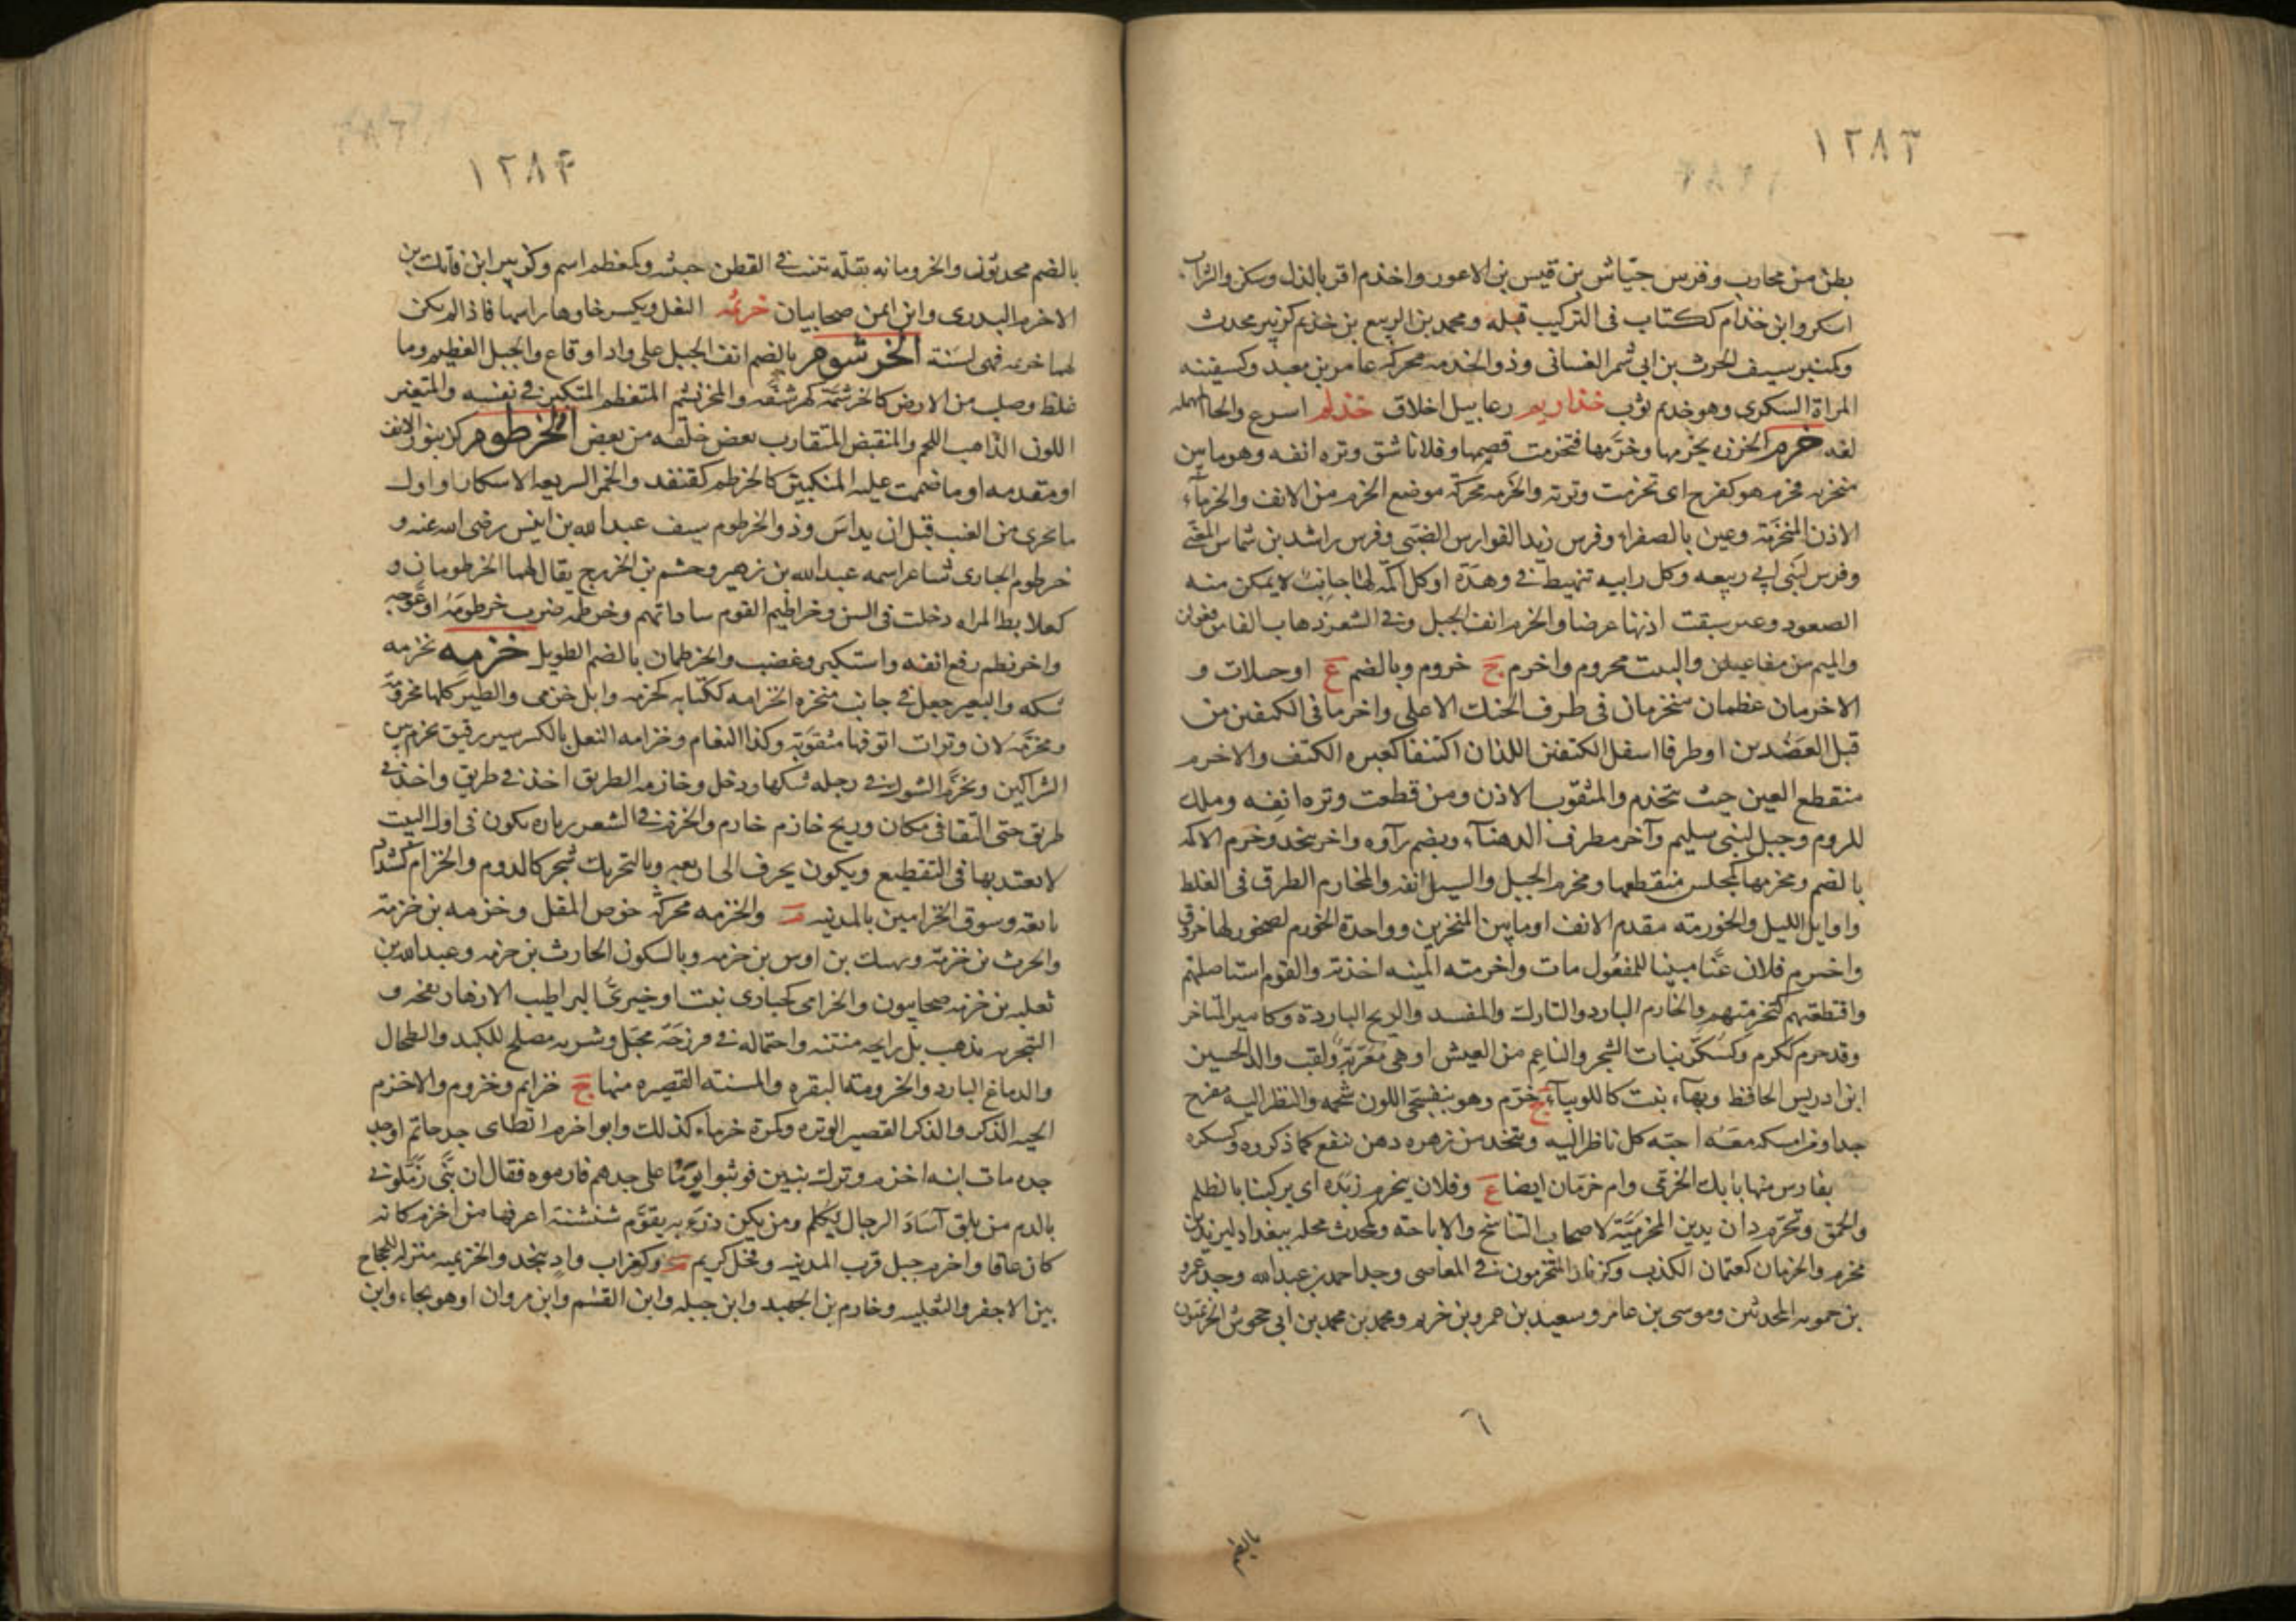 ١٢٨٣
بطن من محارب وفرس حيّاش بن قيس بن الاعور واخذم اقر بالذل وسكن والشراب
اسكر وابن خذام ككتاب فى التركيب قبله ومحمد بن الربيع بن خذيم كزبير محدث
وكمنبر سيف الحرث بن ابى شمر الغسانى وذو الخدمه محركه عامر بن معبد وكسفينه
المراة السكرى وهو خذم ثوب خذاريم رعابيل اخلاق خذلم اسرع والحا المهمله
لغه خرم الخرزه يخرمها وخرّمها فتخرمت فصمها وفلانا شق وتره انفه وهو ما بين
منخريه فخرم هو كفرح اى تخرمت وترته والخرمه محركة موضع الخرم من الانف والخرمآء
الاذن المنخرمة وعين بالصفراء وفرس زيد الفوارس الضبى وفرس راشد بن شماس المعنى
وفرس لبنى ابى ربيعه وكل رابيه تنهبط فى وهدة او كل اكمه لها جانب لا يمكن منه
الصعود وعنز سبقت اذنها عرضا والخرم انف الجبل وفى الشعر ذهاب الفا من فعولن
والميم من مفاعيلن والبيت مخروم واخرم ج خروم وبالضم ع او جبلات و
الاخرمان عظمان منخرمان فى طرف الحنك الاعلى واخرما فى الكتفين من
قبل العضدين او طرفا اسفل الكتفين اللذان اكتنفا كعبره الكتف والاخرم
منقطع العين حيث تخذم والمثقوب الاذن ومن قطعت وتره انفه وملك
للروم وجبل لبنى سليم وآخر مطرف الدهنآء وبضم رآوه واخر بنجد وخرم الاكمه
بالضم ومخرمها كمجلس منقطعها ومخرم الجبل والسيل انفه والمخارم الطرق فى الغلظ
واوايل الليل والخورمه مقدم الانف او ما بين المنخرين وواحدة الخورم لصخور لها خروق
واخترم فلان عنّا مبنيا للمفعول مات واخترمته المنيه اخذته والقوم استاصلتهم
واقتطعتهم كتخرمتهم والخارم البارد والتارك والمفسد والريح الباردة وكامير الماخر
وقد خرم ككرم وكسكّر نبات الشجر والناعم من العيش او هى معرّبة ولقب والد الحسين
ابن ادريس الحافظ وبهآء نبت كاللوبيآء ج خرّم وهو بنفسجى اللون شمه والنظر اليه مفرح
جدا ومن امسكه معه احبه كل ناظر اليه ويتخذ من زهره دهن ينفع لما ذكروه وكسكره
بفارس منها بابك الخرمى وام خرمان ايضا ع وفلان يتخرم زبده اى يركبنا بالظلم
والحمق وتخرّم دان بدين الخرميّة لاصحاب التناسخ والاباحه وكمحدث محله ببغداد ليزيد بن
مخرم والخرمان كعثمان الكذب وكزنار المتخرمون فى المعاصى وجد احمد بن عبدالله وجد عمرو
بن حمويه المحدثين وموسى بن عامر وسعيد بن عمرو بن خريم ومحمد بن محمد بن ابى جحوش الخريميون
٦
بالضم
١٢٨٤
بالضم محدثون والخرومانه بقله تنبت فى القطن خبيثه وكمعظم اسم وكزبير ابن فاتك بن
الاخرم البدرى وابن ايمن صحابيان خرثمه النعل ويكسر خاوها راسها فاذا لم يكن
لها خرثمه فهى لسنة الخرشوم بالضم انف الجبل على واد او قاع والجبل العظيم وما
غلظ وصلب من الارض كالخرشمة كهرشفّه والمخرنشم المتعظم المتكبر فى نفسه والمتغير
اللون الذاهب اللحم والمنقبض المتقارب بعض خلقه من بعض الخرطوم كزنبور الانف
او مقدمه او ما ضممت عليه الحنكين كالخرطم كقنفذ والخمر السريعه الاسكار واول
ما يجرى من العنب قبل ان يداس وذو الخرطوم سيف عبدالله بن انيس رضى الله عنه و
خرطوم الحبارى شاعر اسمه عبدالله بن زهير وجشم بن الخزرج يقال لهما الخرطومان و
كعلابط المراه دخلت فى السن وخراطيم القوم ساداتهم وخرطمه ضرب خرطومه او عوجه
واخرنطم رفع انفه واستكبر وغضب والخرطمان بالضم الطويل خزمه يخزمه
شكه والبعير جعل فى جانب منخره الخزامه ككتابه كخزمه وابل خزمى والطير كلها مخزومة
ومخزمه لان وترات انوفها مثقوبة وكذا النعام وخزامه النعل بالكسر سير رقيق يخزم بين
الشراكين وتخزّم الشوك فى رجله شكها ودخل وخازمه الطريق اخذ فى طريق واخذ فى
طريق حتى التقيا فى مكان وريح خازم خارم والخزم فى الشعر زياده تكون فى اول البيت
لا يعتد بها فى التقطيع ويكون بحرف الى اربعه وبالتحريك شجر كالدوم والخزام كشداد
بايعه وسوق الخزامين بالمدينه م والخزمه محركة خوص المقل وخزمه بن خزمة
والحرث بن خزمة ونهيك بن اوس بن خزمه وبالسكون الحارث بن خزمه وعبدالله بن
ثعلبه بن خزمه صحابيون والخزامى كحبارى نبت او خيرىّ البر اطيب الازهار نفحه و
التبخر به يذهب كل رايحه منتنه واحتماله فى فرزجة محبّل وشربه مصلح للكبد والطحال
والدماغ البارد والخزومة البقره والمسنه القصيره منها ج خزايم وخزوم والاخزم
الحيه الذكر والذكر القصير الوتره وكمرة خزماء كذلك وابو اخزم الطاى جد حاتم او جد
جده مات ابنه اخزم وترك بنين فوثبوا يوما على جدهم فادموه فقال ان بنىّ زمّلونى
بالدم من يلق آساد الرجال يكلم ومن يكن درء به يقوّم شنشنة اعرفها من اخزم كانه
كان عاقا واخزم جبل قرب المدينه وفحل كريم م وكغراب واد بنجد والخزيميه منزله للحاج
بين الاجفر والثعلبيه وخازم بن الجهبذ وابن جبله وابن القسم وابن مروان او هو بحاء وابن